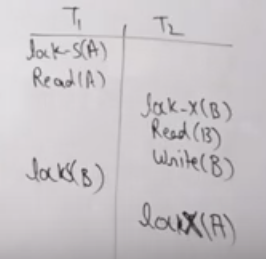 T1 T2
lock-S(A)
Read(A)
lock-X(B)
Read(B)
Write(B)
lockS(B)
lockX(A)